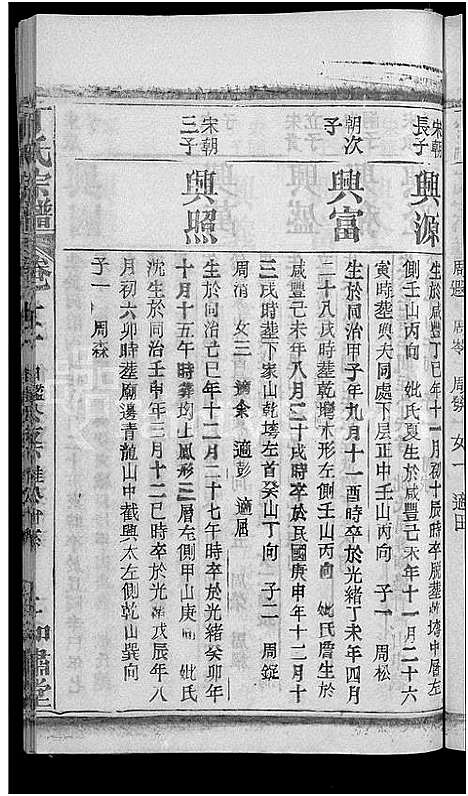 宋朝長子
興源
生於咸豐丁巳年十一月初十辰時卒脫塟乾塆中層左
側壬山丙向 妣氏夏生於咸豐己未年十一月二十六
寅時塟與夫同處下层正中壬山丙向 子一 周松
朝次子
興富
生於同治甲子年九月十一酉時卒於光緒丁未年四月
二十八戌時塟乾塆木形左側壬山丙向 妣氏詹生於
咸豐己未年八月二十戌時卒於民國庚申年十二月十
三戌時塟下家山乾塆左首癸山丁向 子二 周錠
周消 女三 適余 適彭 適屈
宋朝三子
興照
生於同治己巳年十二月二十七午時卒於光緒癸卯年
十月十五午時葬塆上鳳形三層左側甲山庚向 妣氏
沈生於同治壬申年三月十二巳時卒於光緒戊辰年八
月初六卯時塟廟邊青龍山中截興太左側乾山巽向
子一 周森
氏宗譜